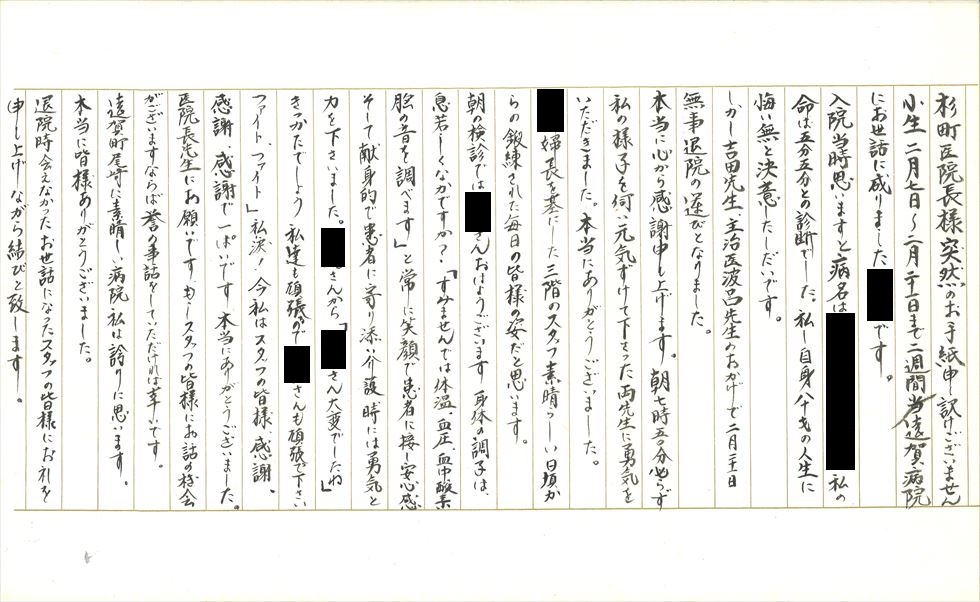 杉町医院長様 突然のお手紙申し訳けございません
小生 二月七日〜二月二十一日まで二週間当遠賀病院
にお世話に成りました です。
入院当時思いますと病名は 私の
命は五分五分との診断でした、私し自身八十才の人生に
悔い無と決意したしだいです。
しかし吉田先生、主治医波呂先生のおかげで二月二十一日
無事退院の運びとなりました。
本当に心から感謝申し上げます。朝七時五〇分必らず
私の様子を伺い元気ずけて下さった両先生に勇気を
いただきました。本当にありがとうございました。
婦長を基にした三階のスタッフ素晴らしい日頃か
らの鍛練された毎日の皆様の姿だと思います。
朝の検診では さんおはようございます 身体の調子は、
息苦しくなかですか？「すみませんでは体温、血圧、血中酸素
胸の音を調べます」と常に笑顔で患者に接し安心感
そして献身的で患者に寄り添い介護時には勇気と
力を下さいました。 さんから「 さん大変でしたね」
きつかったでしょう 私達も頑張るので さんも頑張て下さい
ファイト、ファイト」私涙！今私はスタッフの皆様、感謝、
感謝、感謝で一ぱいです 本当にありがとうございました。
医院長先生にお願いです もしスタッフの皆様にお話の機会
がございますならば誉の事話をしていただければ幸いです。
遠賀町尾崎に素晴しい病院、私は誇りに思います。
本当に皆様ありがとうございました。
退院時会えなかったお世話になったスタッフの皆様にお礼を
申し上げながら結びと致します。